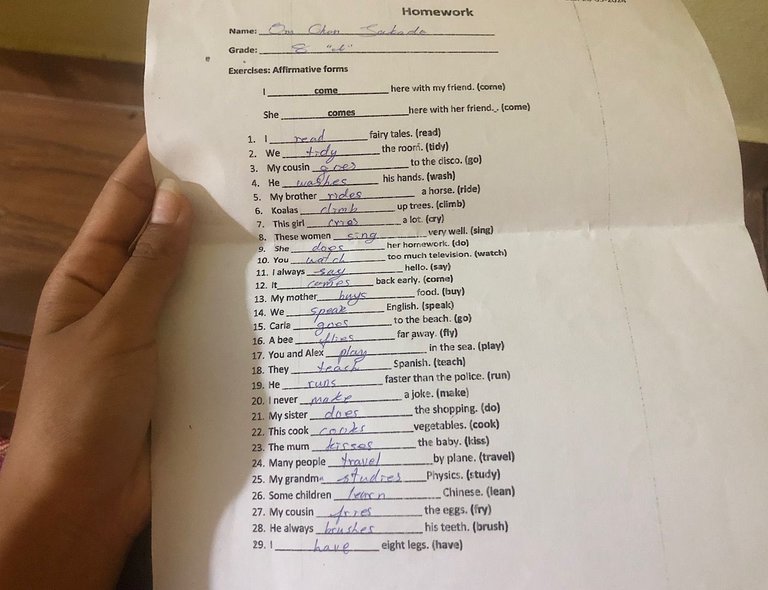 Homework
Name: Om Chan
Grade: 8 "A"
Exercises: Affirmative forms
I come here with my friend. (come)
She comes here with her friend.. (come)
1. I read fairy tales. (read)
2. We tidy the room. (tidy)
3. My cousin goes to the disco. (go)
4. He washes his hands. (wash)
5. My brother rides a horse. (ride)
6. Koalas climb up trees. (climb)
7. This girl cries a lot. (cry)
8. These women sing very well. (sing)
9. She does her homework. (do)
10. You watch too much television. (watch)
11. I always say hello. (say)
12. It comes back early. (come)
13. My mother buys food. (buy)
14. We speak English. (speak)
15. Carla goes to the beach. (go)
16. A bee flies far away. (fly)
17. You and Alex play in the sea. (play)
18. They teach Spanish. (teach)
19. He runs faster than the police. (run)
20. I never make a joke. (make)
21. My sister does the shopping. (do)
22. This cook cooks vegetables. (cook)
23. The mum kisses the baby. (kiss)
24. Many people travel by plane. (travel)
25. My grandma studies Physics. (study)
26. Some children learn Chinese. (lean)
27. My cousin fries the eggs. (fry)
28. He always brushes his teeth. (brush)
29. I have eight legs. (have)